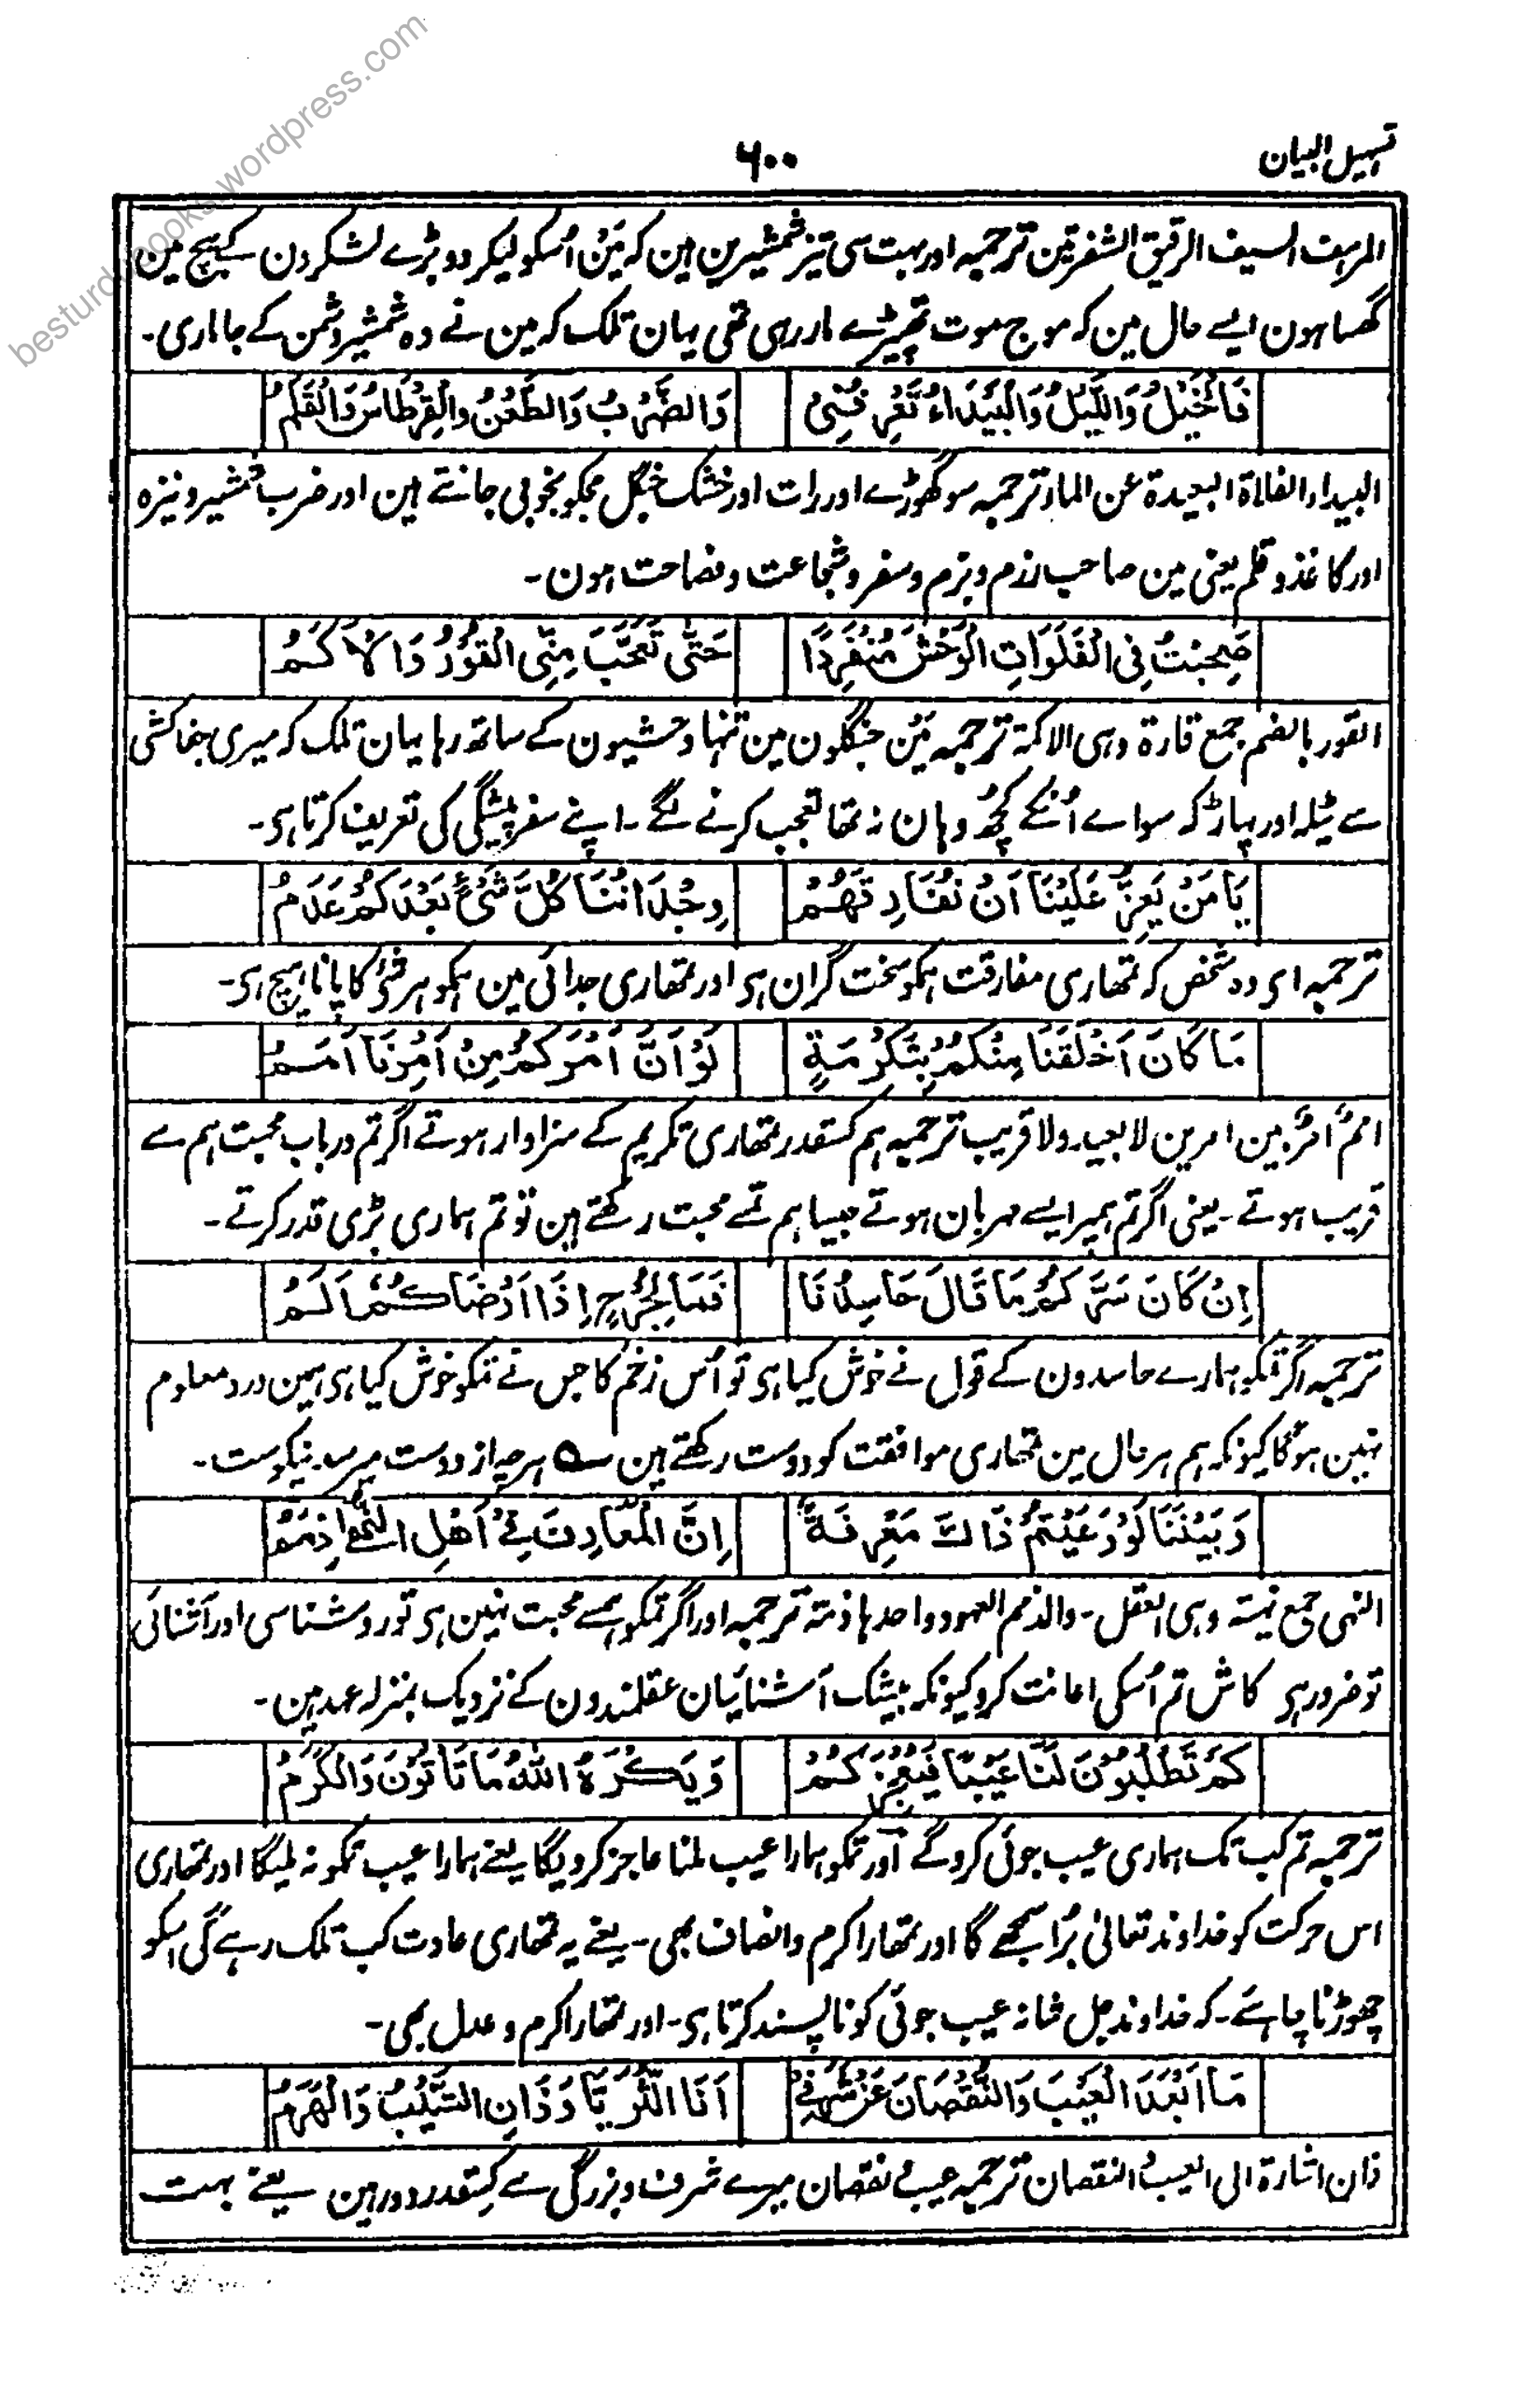 تسہیل البیان
۶۰۰
المرہف السیف الرقیق الشفرتین ترجمہ اور بہت سی تیز شمشیرین ہین کہ مَین اُسکو لیکر دو بڑے لشکرون کے بیچ مین
گھسا ہون ایسے حال مین کہ موج موت تھپیڑے مار رہی تھی یہان تلک کہ مین نے وہ شمشیر دشمن کے جا ماری۔
فَالْخَيْلُ وَاللَّيْلُ وَالْبَيْدَاءُ تَعْرِفُنِيْ وَالضَّرْبُ وَالطَّعْنُ وَالْقِرْطَاسُ وَالْقَلَمُ
البیداء الفلاۃ البعیدۃ عن الماء ترجمہ سو گھوڑے اور رات اور خشک جنگل مجکو بخوبی جانتے ہین اور ضرب شمشیر و نیزہ
اور کاغذ و قلم یعنی مین صاحب رزم و بزم و سفر و شجاعت و فصاحت ہون۔
صَحِبْتُ فِي الْفَلَوَاتِ الْوَحْشَ مُنْفَرِدًا حَتّٰى تَعَجَّبَ مِنِّي الْقُوْرُ وَالْاَكَمُ
القور بالضم جمع قارۃ وہی الاکمۃ ترجمہ مَین جنگلون مین تنہا وحشیون کے ساتھ رہا یہان تلک کہ میری جفاکشی
سے ٹیلہ اور پہاڑ کہ سواے اُنکے کچھ وہان نہ تھا تعجب کرنے لگے۔ اپنے سفر پیشگی کی تعریف کرتا ہی۔
يَا مَنْ يَعِزُّ عَلَيْنَا اَنْ نُفَارِقَهُمْ وِجْدَانُنَا كُلَّ شَيْءٍ بَعْدَكُمْ عَدَمُ
ترجمہ ای وہ شخص کہ تمھاری مفارقت ہمکو سخت گران ہی اور تمھاری جدائی مین ہمکو ہر شیٔ کا پانا ہیچ ہی۔
مَا كَانَ اَخْلَقَنَا مِنْكُمْ بِتَكْرُمَةٍ لَوْ اَنَّ اَمْرَكُمْ مِنْ اَمْرِنَا اَمَمُ
امم امر بین امرین لا بعید ولا قریب ترجمہ ہم کسقدر تمھاری تکریم کے سزاوار ہوتے اگر تم درباب محبت ہم سے
قریب ہوتے۔ یعنی اگر تم ہمپر ایسے مہربان ہوتے جیسا ہم تمسے محبت رکھتے ہین تو تم ہماری بڑی قدر کرتے۔
اِنْ كَانَ سَرَّكُمْ مَا قَالَ حَاسِدُنَا فَمَا لِجُرْحٍ اِذَا اَرْضَاكُمْ اَلَمُ
ترجمہ اگر تمکو ہمارے حاسدون کے قول نے خوش کیا ہی تو اُس زخم کا جس نے تمکو خوش کیا ہی ہمین درد معلوم
نہین ہوگا کیونکہ ہم ہر حال مین تمھاری موافقت کو دوست رکھتے ہین ؎ ہرچہ از دوست میرسد نیکوست۔
وَبَيْنَنَا لَوْ رَعَيْتُمْ ذَاكَ مَعْرِفَةٌ اِنَّ الْمَعَارِفَ فِيْ اَهْلِ النُّهٰى ذِمَمُ
النہی جمع نہیتہ وہی العقل۔ والذمم العہود واحدہا ذمۃ ترجمہ اور اگر تمکو ہمسے محبت نہین ہی تو روشناسی اور آشنائی
تو ضرور ہی کاش تم اُسکی اعانت کرو کیونکہ بیشک آشنائیان عقلمندون کے نزدیک بمنزلہ عہد ہین۔
كَمْ تَطْلُبُوْنَ لَنَا عَيْبًا فَيُعْجِزُكُمْ وَيَكْرَهُ اللّٰهُ مَا تَاْتُوْنَ وَالْكَرَمُ
ترجمہ تم کب تک ہماری عیب جوئی کروگے اور تمکو ہمارا عیب ملنا عاجز کردیگا یعنے ہمارا عیب تمکو نہ ملیگا اور تمھاری
اس حرکت کو خداوند تعالیٰ بُرا سمجھے گا اور تمھارا کرم و انصاف بھی۔ یعنے یہ تمھاری عادت کب تلک رہے گی اسکو
چھوڑنا چاہئے۔ کہ خداوند جل شانہ عیب جوئی کو ناپسند کرتا ہی۔ اور تمھارا کرم و عدل بھی۔
مَا اَبْعَدَ الْعَيْبَ وَالنُّقْصَانَ عَنْ شَرَفِيْ اَنَا الثُّرَيَّا وَذَانِ الشَّيْبُ وَالْهَرَمُ
ذان اشارۃ الی العیب النقصان ترجمہ عیب و نقصان میرے شرف و بزرگی سے کسقدر دور ہین یعنے بہت
besturdubooks.wordpress.com